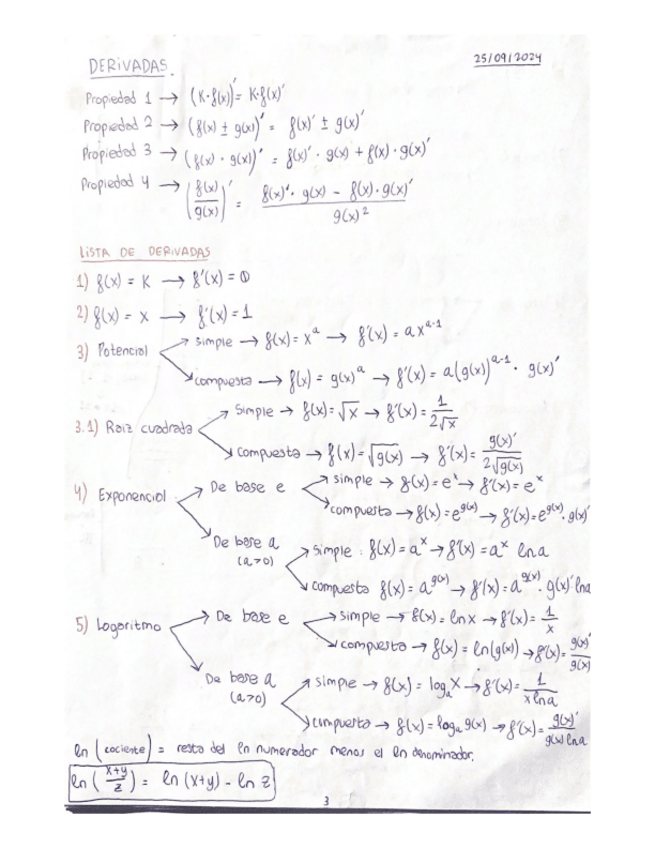 DERIVADAS.
25/09/2024
Propiedad 1 → (K·f(x))' = K·f(x)'
Propiedad 2 → (f(x) ± g(x))' = f(x)' ± g(x)'
Propiedad 3 → (f(x) · g(x))' = f(x)' · g(x) + f(x) · g(x)'
Propiedad 4 → (f(x)/g(x))' = (f(x)' · g(x) − f(x) · g(x)')/g(x)²
LISTA DE DERIVADAS
1) f(x) = K → f'(x) = 0
2) f(x) = x → f'(x) = 1
3) Potencial
simple → f(x) = x^a → f'(x) = a x^(a-1)
compuesta → f(x) = g(x)^a → f'(x) = a(g(x))^(a-1) · g(x)'
3.1) Raiz cuadrada
simple → f(x) = √x → f'(x) = 1/(2√x)
compuesta → f(x) = √g(x) → f'(x) = g(x)'/(2√g(x))
4) Exponencial
De base e
simple → f(x) = e^x → f'(x) = e^x
compuesta → f(x) = e^g(x) → f'(x) = e^g(x) · g(x)'
De base a
(a>0)
simple : f(x) = a^x → f'(x) = a^x ln a
compuesta f(x) = a^g(x) → f'(x) = a^g(x) · g(x)' ln a
5) Logaritmo
De base e
simple → f(x) = ln x → f'(x) = 1/x
compuesta → f(x) = ln(g(x)) → f'(x) = g(x)'/g(x)
De base a
(a>0)
simple → f(x) = logₐ x → f'(x) = 1/(x ln a)
compuesta → f(x) = logₐ g(x) → f'(x) = g(x)'/(g(x) ln a)
ln (cociente) = resta del ln numerador menos el ln denominador.
ln ((x+y)/z) = ln (x+y) − ln z
3